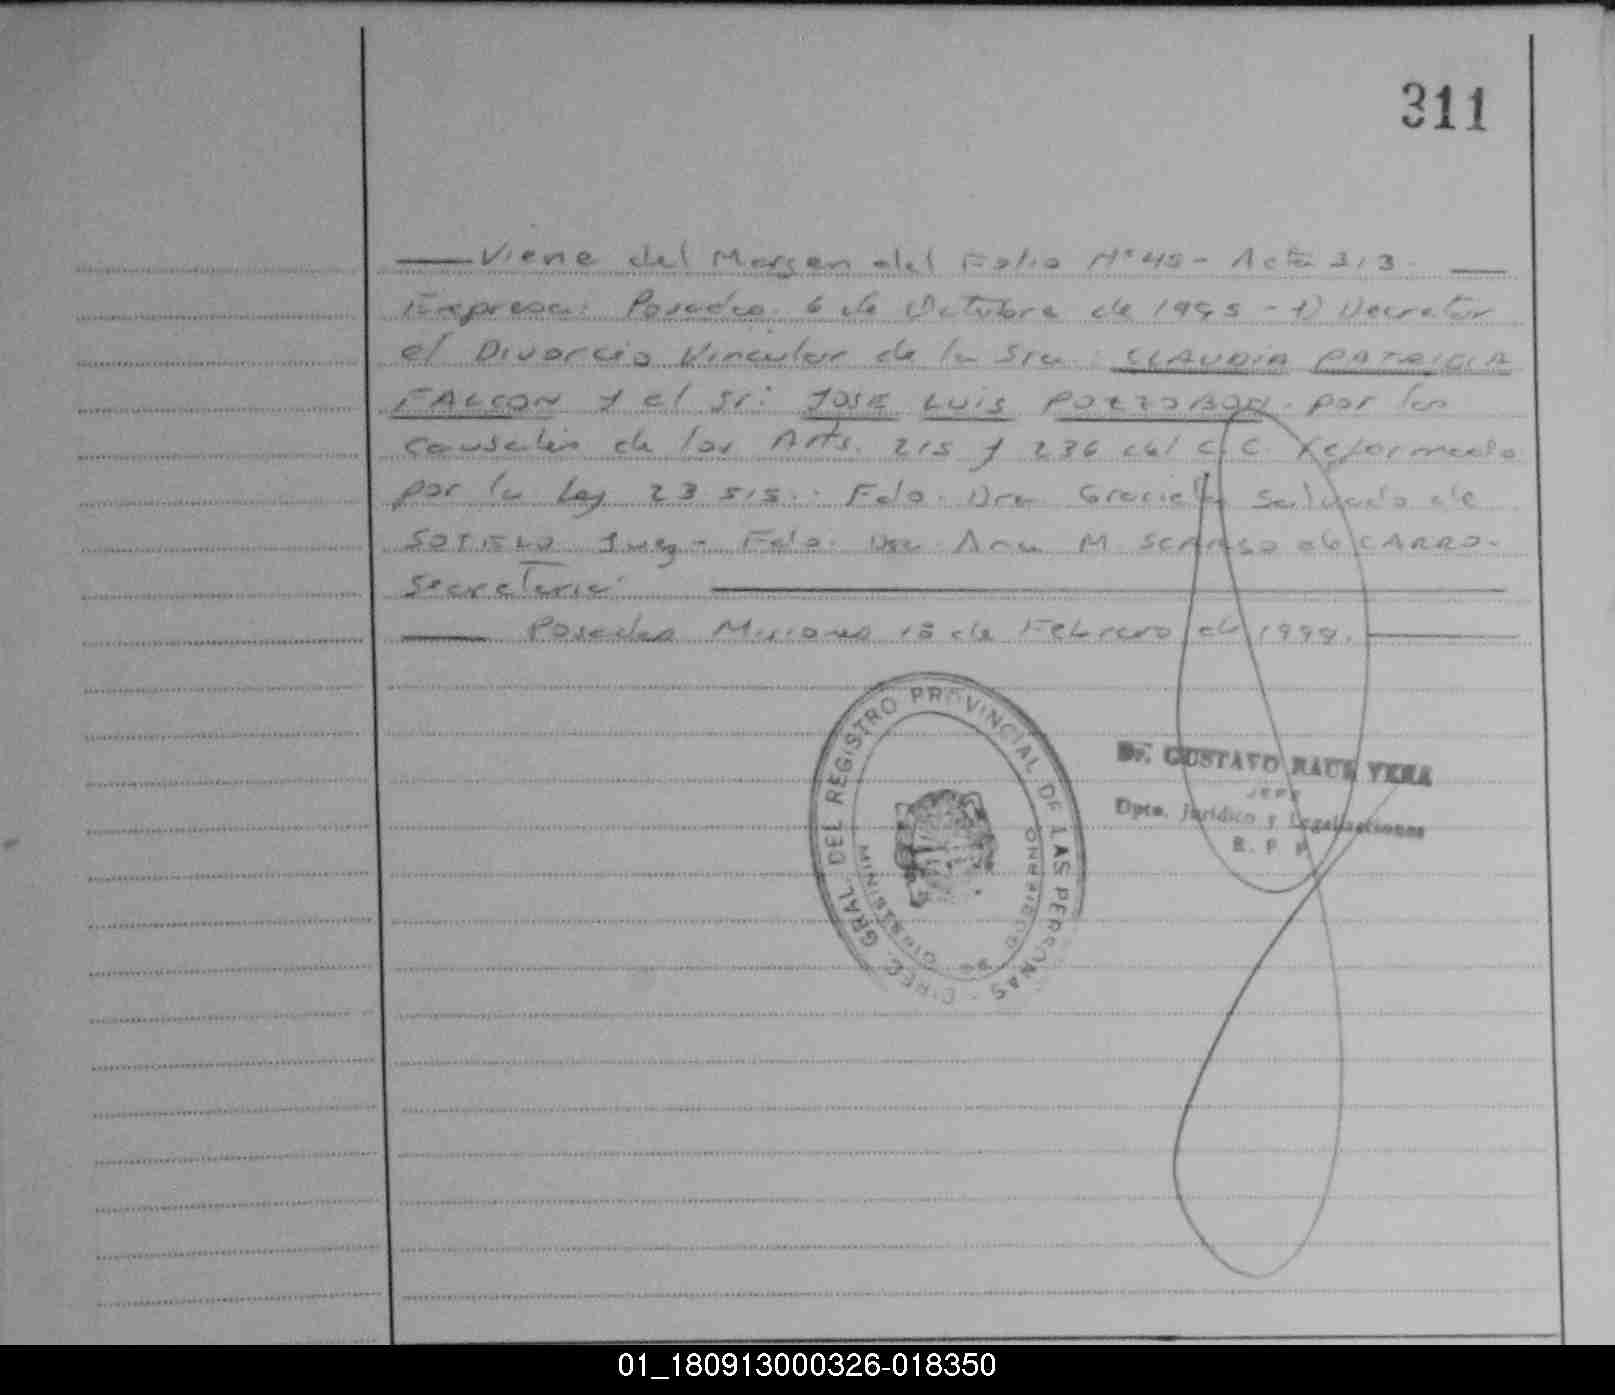 311
Viene del Margen del Folio Nº 45 - Acta 313.
Expresa: Posadas. 6 de Octubre de 1995 - 1) Decretar
el Divorcio Vincular de la Sra: CLAUDIA PATRICIA
FALCON y el Sr: JOSE LUIS POZZOBON. por las
causales de los Arts. 215 y 236 del C.C. reformado
por la Ley 23515.. Fdo. Dra Graciela Salvado de
SOTELO Juez - Fdo. Dra Ana M. de CARRO.
Secretaria.
Posadas Misiones 18 de Febrero de 1999.
DIREC. GRAL. DEL REGISTRO PROVINCIAL DE LAS PERSONAS
MINISTERIO DE GOBIERNO
Dr. GUSTAVO RAUL VERA
JEFE
Dpto. Jurídico y Legalizaciones
R. P. P
01_180913000326-018350